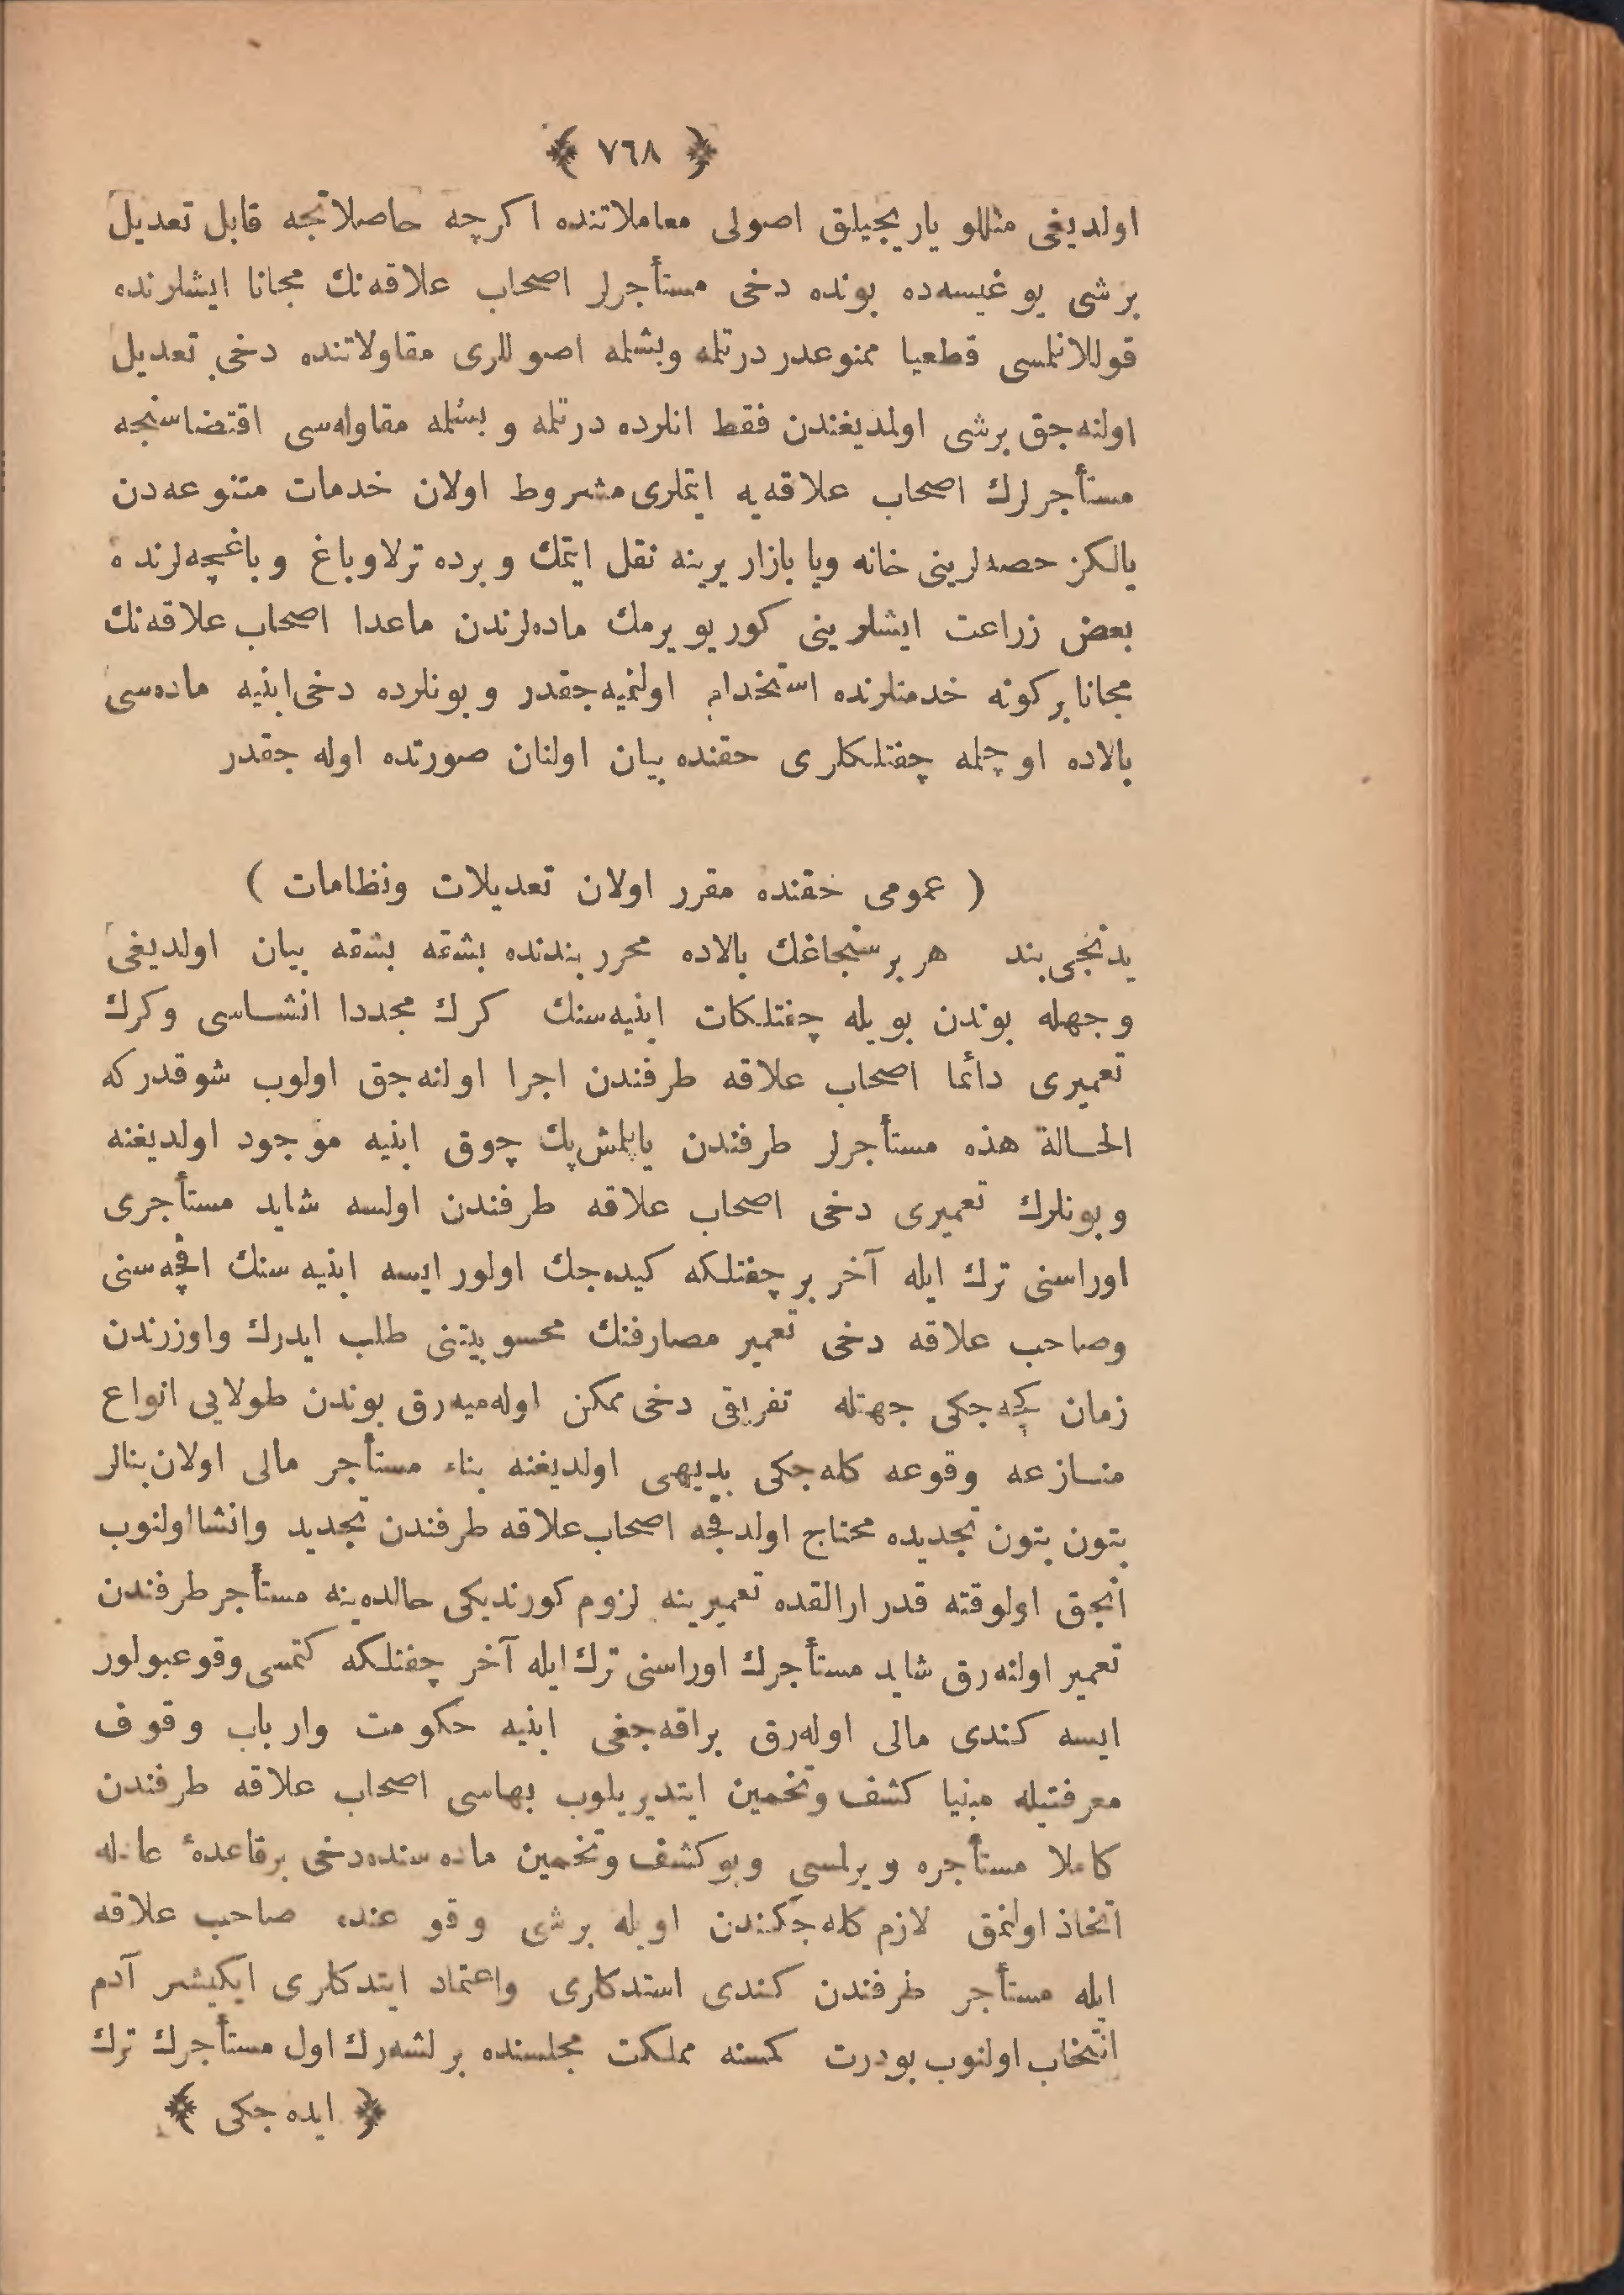 ﴿ ٧٦٨ ﴾
اولدیغی مثللو یاریجیلق اصولی معاملاتنده اكرچه حاصلاتجه قابل تعدیل
برشی یوغیسه‌ده بونده دخی مستأجرلر اصحاب علاقه‌نك مجانا ایشلرنده
قوللانلمسی قطعیا ممنوعدر درتلمه وبشلمه اصوللری مقاولاتنده دخی تعدیل
اولنه‌جق برشی اولمدیغندن فقط انلرده درتلمه و بشلمه مقاوله‌سی اقتضاسنجه
مستأجرلرك اصحاب علاقه‌یه ایتملری مشروط اولان خدمات متنوعه‌دن
یالكز حصه‌لرینی خانه ویا بازار یرینه نقل ایتمك و برده ترلا وباغ و باغچه‌لرنده
بعض زراعت ایشلرینی كوریویرمك ماده‌لرندن ماعدا اصحاب علاقه‌نك
مجانا بركونه خدمتلرنده استخدام اولنمیه‌جقدر و بونلرده دخی ابنیه ماده‌سی
بالاده اوچلمه چفتلكلری حقنده بیان اولنان صورتده اوله جقدر
( عمومی حقنده مقرر اولان تعدیلات ونظامات )
یدنجی بند هر بر سنجاغك بالاده محرر بندنده بشقه بشقه بیان اولدیغی
وجهله بوندن بویله چفتلكات ابنیه‌سنك كرك مجددا انشاسی وكرك
تعمیری دائما اصحاب علاقه طرفندن اجرا اولنه‌جق اولوب شوقدركه
الحالة هذه مستأجرلر طرفندن یاپلمش پك چوق ابنیه موجود اولدیغنه
وبونلرك تعمیری دخی اصحاب علاقه طرفندن اولسه شاید مستأجری
اوراسنی ترك ایله آخر بر چفتلكه كیده‌جك اولور ایسه ابنیه سنك اقچه‌سنی
وصاحب علاقه دخی تعمیر مصارفنك محسوبیتنی طلب ایدرك واوزرندن
زمان كچه‌جكی جهتله تفریقی دخی ممكن اوله‌میه‌رق بوندن طولایی انواع
منازعه وقوعه كله‌جكی بدیهی اولدیغنه بناء مستأجر مالی اولان بنالر
بتون بتون تجدیده محتاج اولدقجه اصحاب علاقه طرفندن تجدید وانشا اولنوب
انجق اولوقته قدر ارالقده تعمیرینه لزوم كورندیكی حالده ینه مستأجر طرفندن
تعمیر اولنه‌رق شاید مستأجرك اوراسنی ترك ایله آخر چفتلكه كتمسی وقوعبولور
ایسه كندی مالی اوله‌رق براقه‌جغی ابنیه حكومت وارباب وقوف
معرفتیله مبنیا كشف وتخمین ایتدیریلوب بهاسی اصحاب علاقه طرفندن
كاملا مستأجره ویرلسی وبو كشف وتخمین ماده سنده‌دخی برقاعدۀ عادله
اتخاذ اولنمق لازم كله‌جكندن اویله برشی وقوعنده صاحب علاقه
ایله مستأجر طرفندن كندی استدكلری واعتماد ایتدكلری ایكیشر آدم
انتخاب اولنوب بودرت كمسنه مملكت مجلسنده برلشه‌رك اول مستأجرك ترك
﴿ ایده جكی ﴾